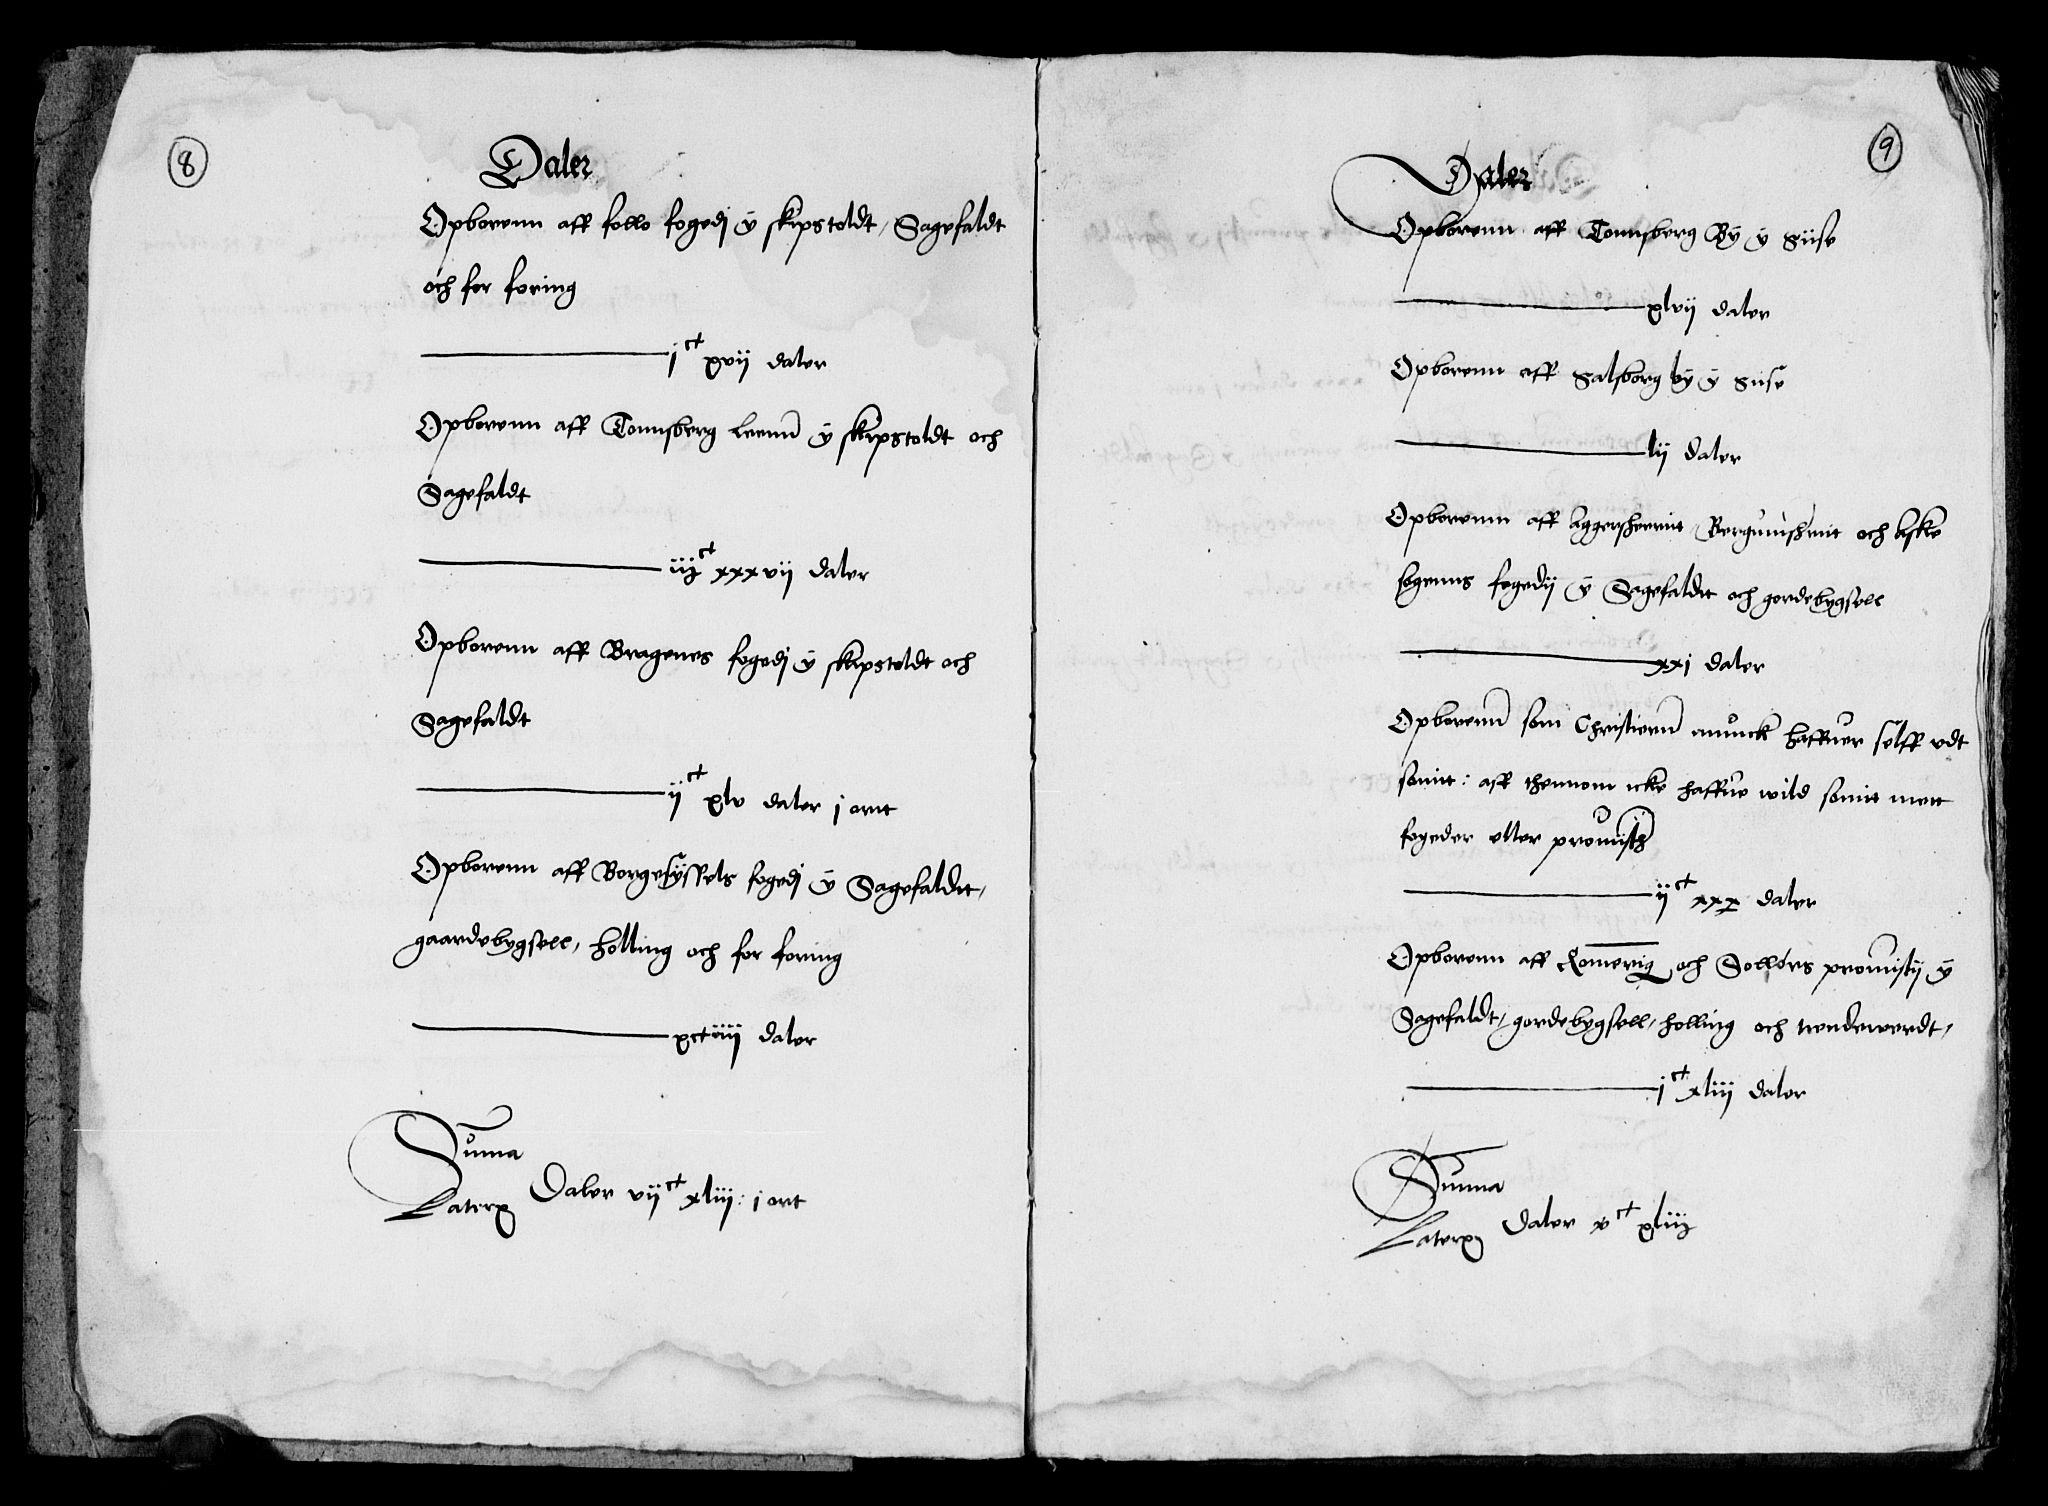 8
Daler
Opborenn aff follo fogedj ÿ skipstoldt, Sagefaldt
och for foring
j ct xvij daler
Opborenn aff Tonnsberg leenn ÿ skipstoldt och
Sagefaldt
iij ct xxxvij daler
Opborenn aff Bragenes fogedj ÿ skipstoldt och
Sagefaldt
ij ct xlv daler j ort
Opborenn aff Borgesÿssels fogedj ÿ Sagefaldtt,
gaardebygsell, holling och for foring
xliiij daler
Summa
Laterꝭ Daler vij ct xliij : j ort
9
Daler
Opborenn aff Tonnsberg Bÿ ÿ siise
xlvij daler
Opborenn aff Salsborg bÿ ÿ siise
lij daler
Opborenn aff Aggersherrit Bergumshrrit och Aske
sogenns fogedij ÿ Sagefaldtt och gordebygsell
xxj daler
Opborenn som Christiernn munck haffuer selff vdt
somit : aff thennom icke haffue wild somit mett
fogeder eller prouisth
ij ct xxx daler
Opborenn aff Romerig och Sollørs prouistij ÿ
Sagefaldt, gordebygsell, holling och tiendewerdt,
j ct xliij daler
Summa
Laterꝭ Daler v ct xliij